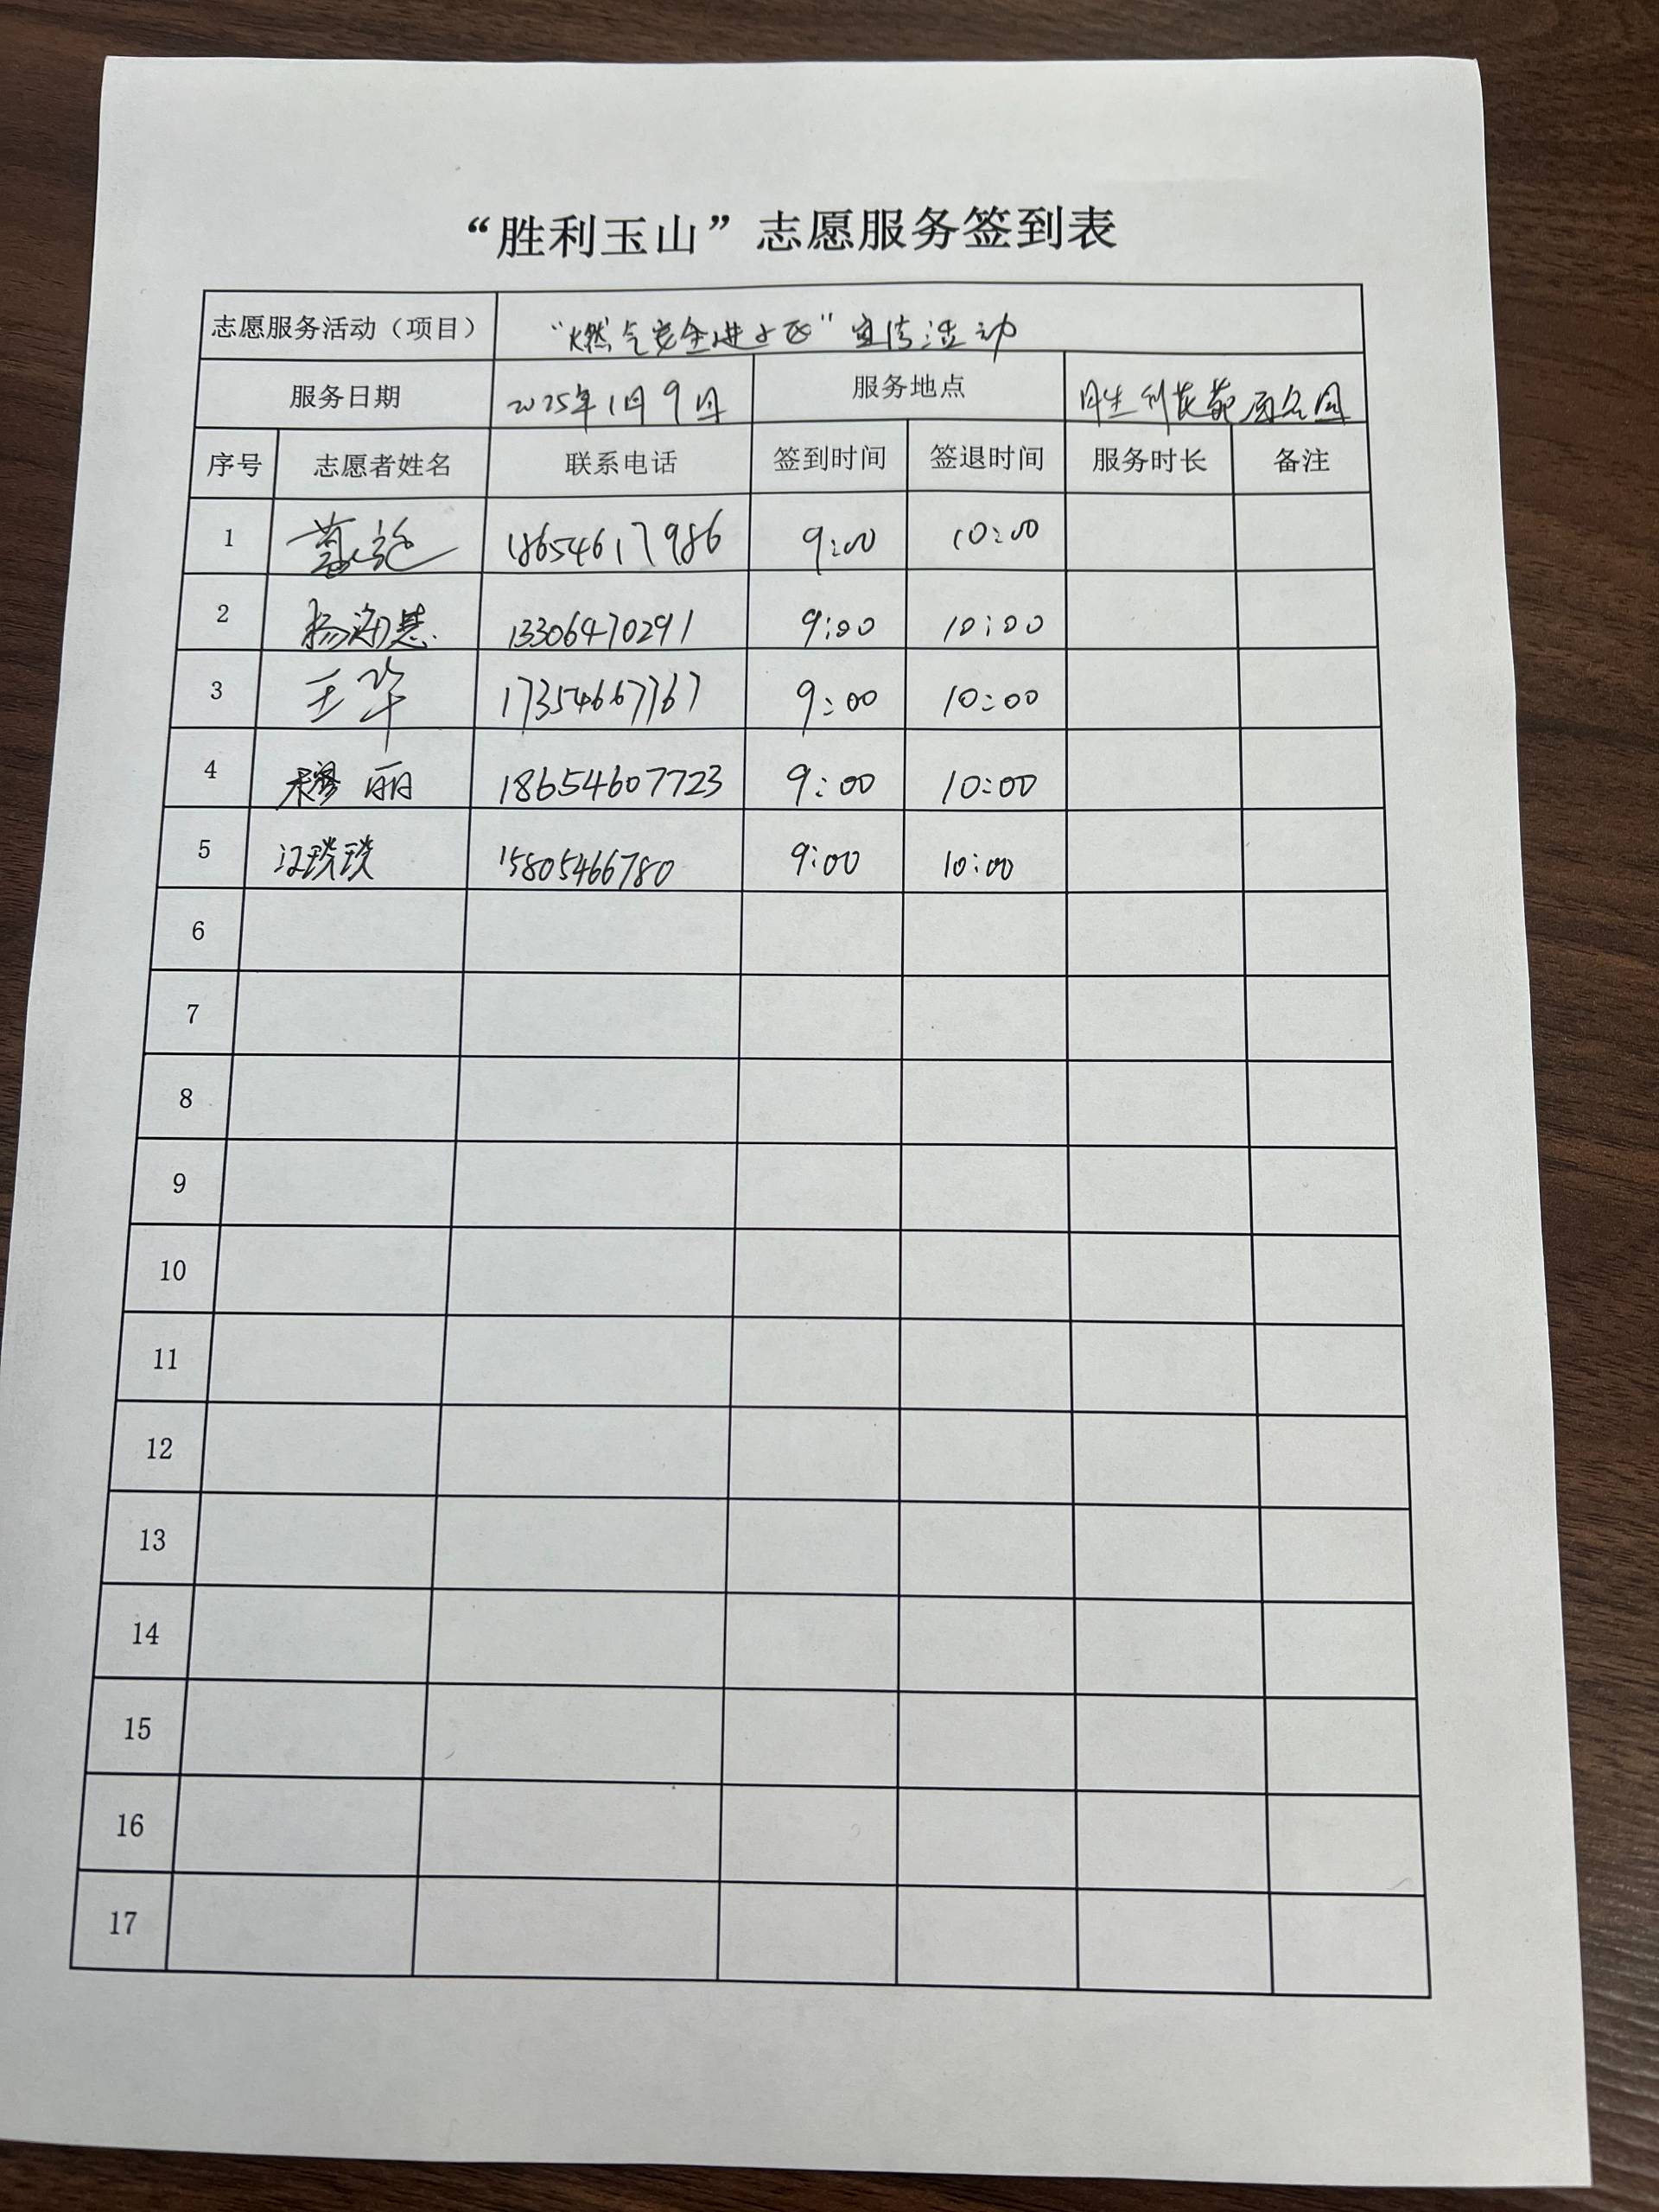 “胜利玉山”志愿服务签到表
志愿服务活动（项目） “燃气安全进小区”宣传活动
服务日期 2025年1月9日 服务地点 胜利花苑
序号 志愿者姓名 联系电话 签到时间 签退时间 服务时长 备注
1 18654617986 9:00 10:00
2 杨海慧 13306470291 9:00 10:00
3 王华 17354667767 9:00 10:00
4 穆丽 18654607723 9:00 10:00
5 汪琰琰 15805466780 9:00 10:00
6
7
8
9
10
11
12
13
14
15
16
17